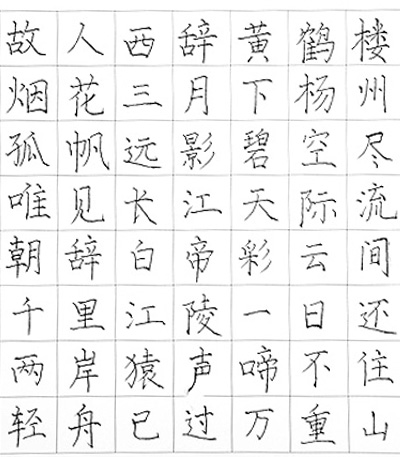 故人西辞黄鹤楼
烟花三月下杨州
孤帆远影碧空尽
唯见长江天际流
朝辞白帝彩云间
千里江陵一日还
两岸猿声啼不住
轻舟已过万重山